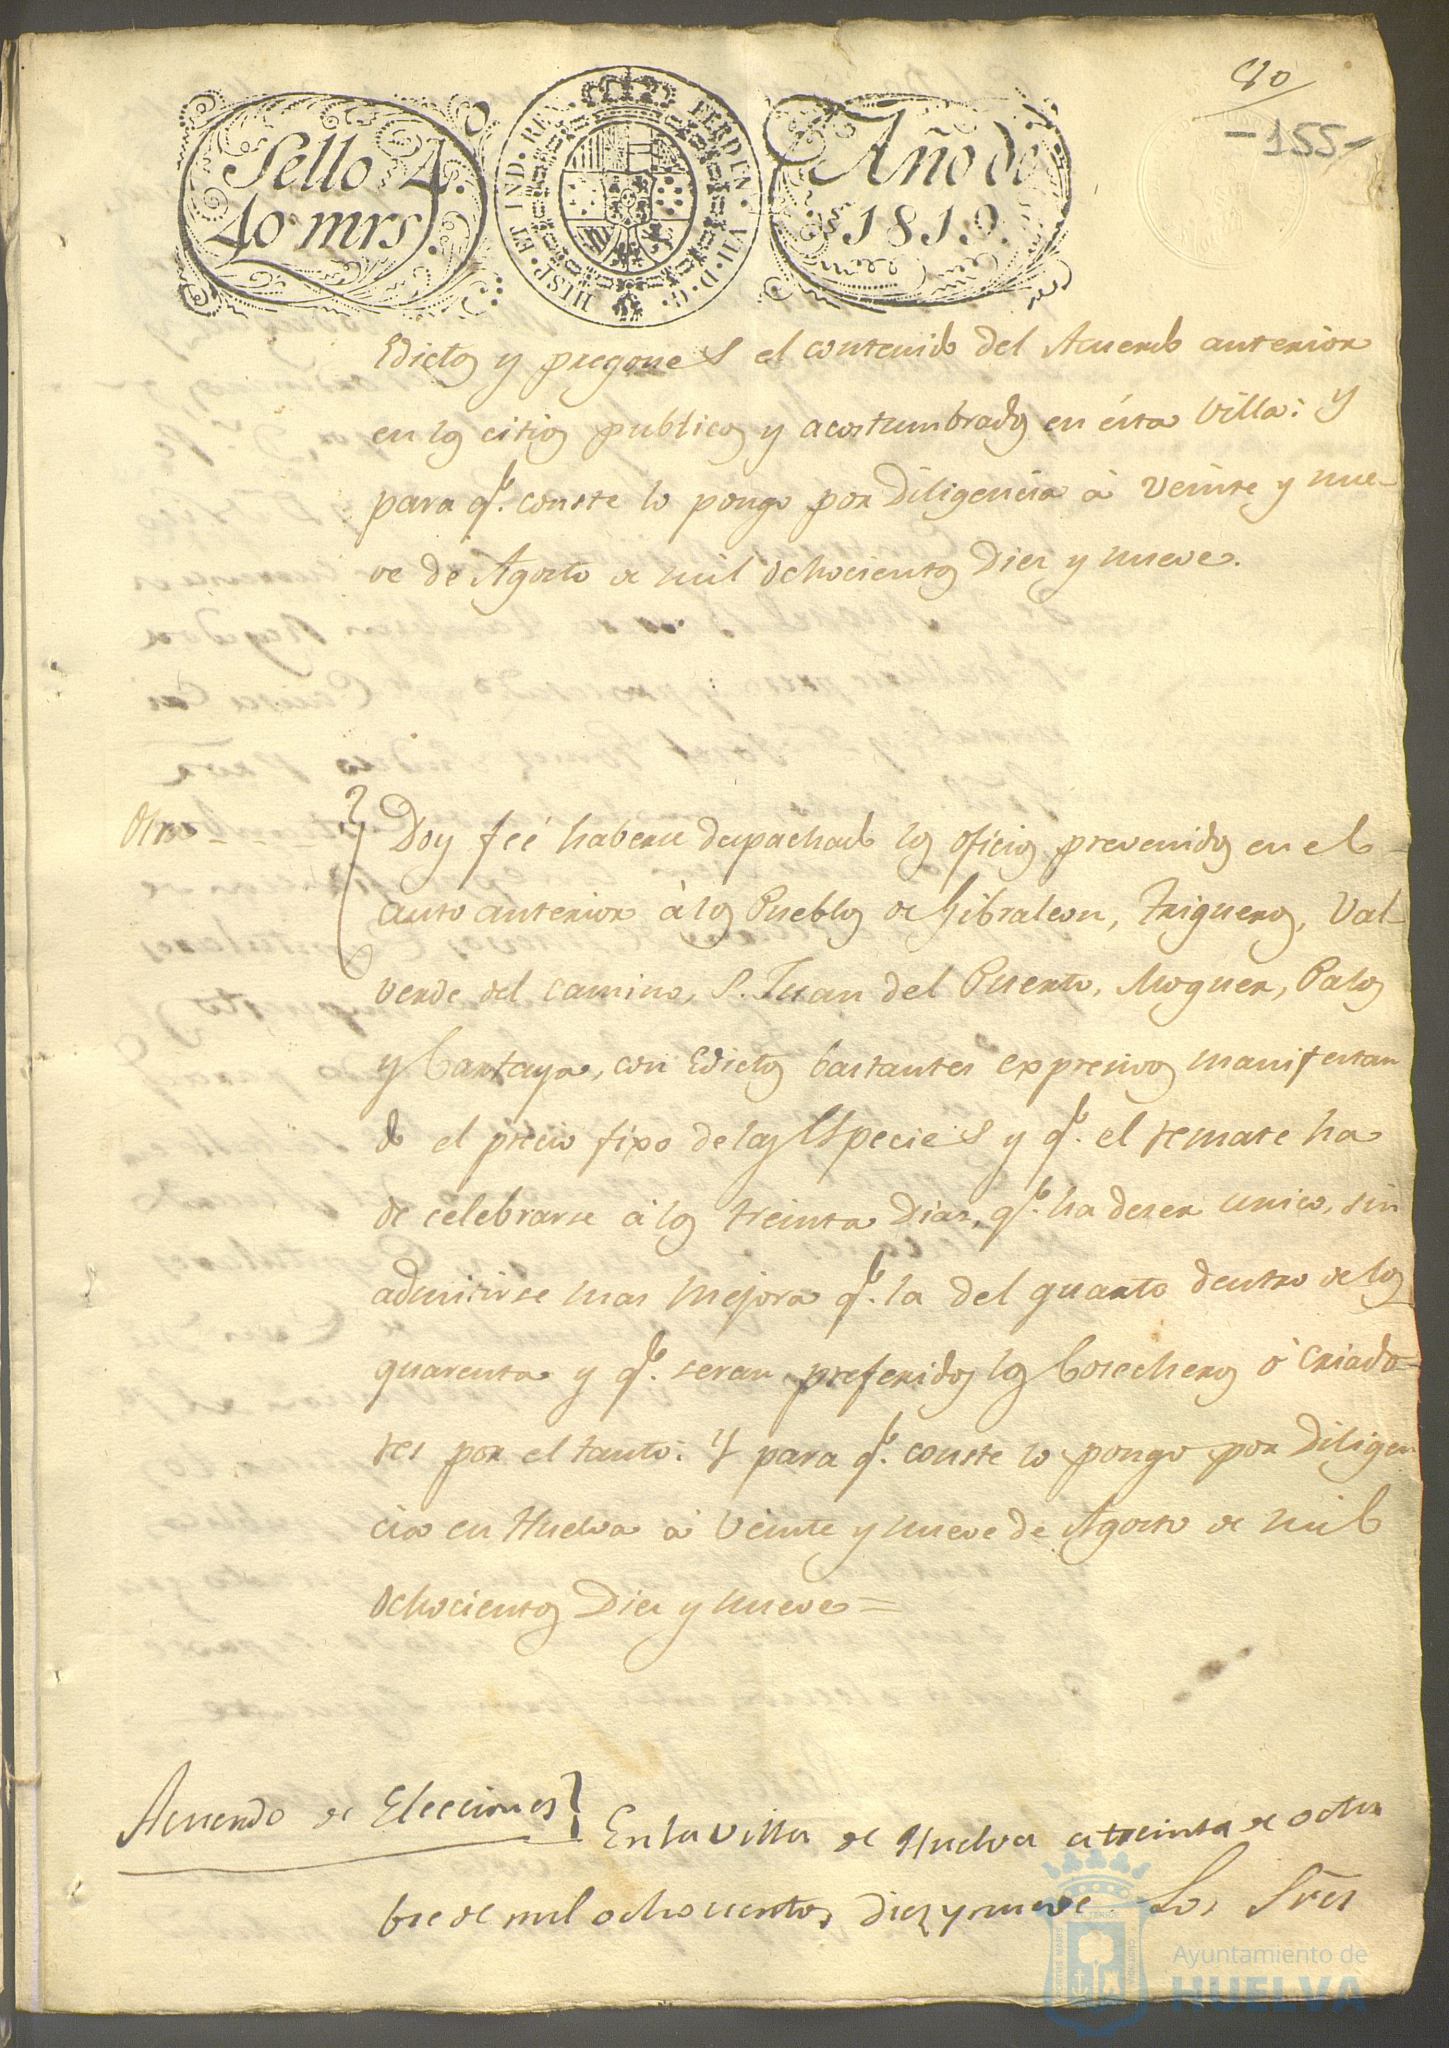 40
-155-
Sello 4.
40 mrs.
HISP. ET IND. REX. FERDIN. VII. D. G.
Año de
1819.
Edictos y pregones el contenido del Acuerdo anterior
en los citios publicos y acostumbrados en ésta Villa: y
para qe. conste lo pongo por Diligencia à veinte y nue-
ve de Agosto de mil ochocientos Diez y nueve.
Otra - - -
Doy feé haberse despachado los oficios prevenidos en el
auto anterior à los Pueblos de Gibraleon, Trigueros, Val
verde del camino, S. Juan del Puerto, Moguer, Palos
y Cartaya, con Edictos bastantes expresivos manifestan
do el precio fixo de las Especies y qe. el remate ha
de celebrarse à los treinta Dias, qe. ha de ser unico, sin
admitirse mas mejora qe. la del quarto dentro de los
quarenta y qe. seran preferidos los Cosecheros ò criado-
res por el tanto: Y para qe. conste lo pongo por Diligen
cia en Huelva à veinte y nueve de Agosto de mil
ochocientos Diez y nueve=
Acuerdo de Elecciones
En la villa de Huelva a treinta de octu
bre de mil ochocientos diez y nueve Los Sres
Ayuntamiento de
HUELVA